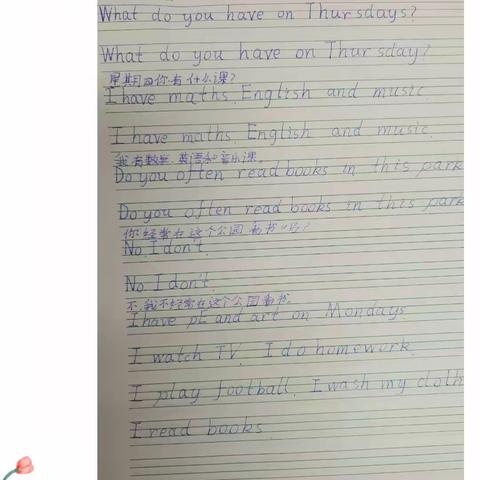 What do you have on Thursdays?
What do you have on Thursday?
星期四你有什么课?
I have maths, English and music.
I have maths, English and music.
我有数学、英语和音乐课。
Do you often read books in this park
Do you often read books in this park
你经常在这个公园看书吗?
No. I don't.
No. I don't.
不,我不经常在这个公园看书。
I have pE and art on Mondays
I watch TV. I do homework.
I play football. I wash my cloth
I read books.